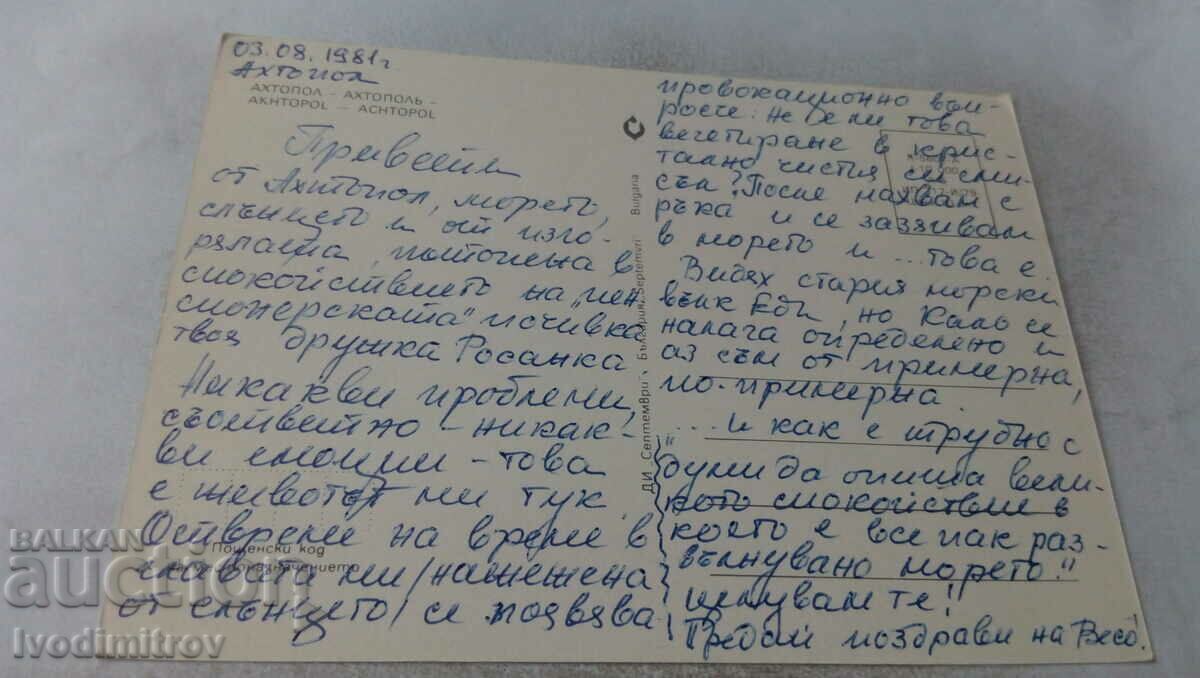 03.08.1981г
Ахтопол
АХТОПОЛ – АХТОПОЛЬ –
AKHTOPOL – ACHTOPOL
Привети
от Ахтопол, морето,
слънцето и от изго-
рялата, потопена в
спокойствието на "пен
сионерската" почивка
твоя дружка Росанка
Никакви проблеми,
съответно – никак-
ви емоции – това
е животът ми тук.
От време на време в
главата ми /нажежена
от слънцето/ се появява
Пощенски код
местоназначението
провокационно въп-
росче: не е ли това
вегетиране в крис-
тално чистия си сми-
съл? После махвам с
ръка и се зазяпвам
в морето и ... това е.
Видях стария морски
вълк Еди, но Кольо се
налага определено и
аз съм от примерна,
по-примерна.
"... и как е трудно с
думи да опиша вели-
кото спокойствие в
което е все пак раз-
вълнувано морето."
Целувам те!
Предай поздрави на Весо.
ДИ „Септември", България, Septemvri, Bulgaria
BALKAN
auction
Ivodimitrov